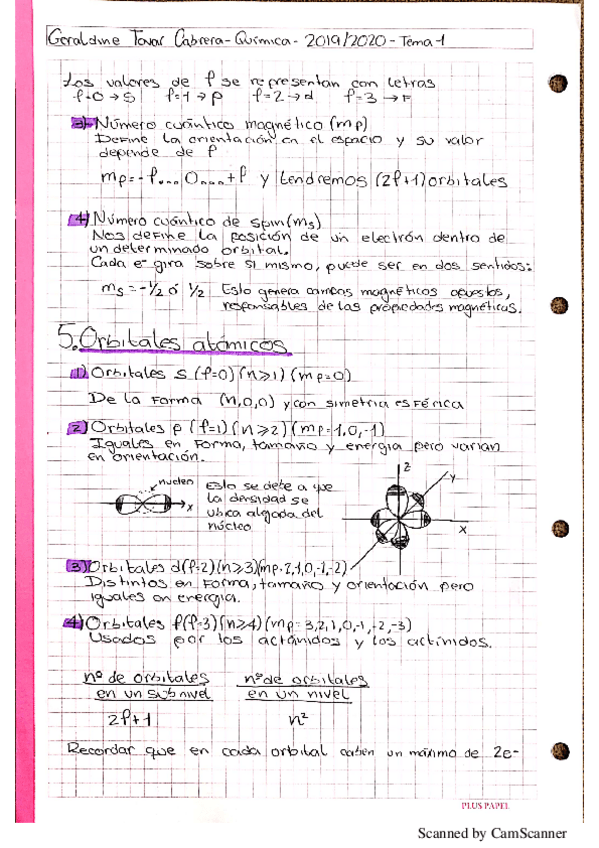 Geraldine Tovar Cabrera - Química - 2019/2020 - Tema-1
Los valores de l se representan con letras
l=0 → s l=1 → p l=2 → d l=3 → F
3) Número cuántico magnético (ml)
Define la orientación en el espacio y su valor
depende de l
ml = -l... 0... +l y tendremos (2l+1) orbitales
4) Número cuántico de spin (ms)
Nos define la posición de un electrón dentro de
un determinado orbital.
Cada e- gira sobre sí mismo, puede ser en dos sentidos:
ms = -1/2 ó 1/2 Esto genera campos magnéticos opuestos,
responsables de las propiedades magnéticas.
5. Orbitales atómicos
1) Orbitales s (l=0) (n≥1) (ml=0)
De la forma (n,0,0) y con simetria esférica
2) Orbitales p (l=1) (n≥2) (ml=1,0,-1)
Iguales en forma, tamaño y energia pero varian
en orientación.
nucleo
x
Esto se debe a que
la densidad se
ubica alejada del
núcleo
z
y
x
3) Orbitales d (l=2) (n≥3) (ml=2,1,0,-1,-2)
Distintos en forma, tamaño y orientación pero
iguales en energia.
4) Orbitales f (l=3) (n≥4) (ml=3,2,1,0,-1,-2,-3)
Usados por los actánidos y los actínidos.
nº de orbitales nº de orbitales
en un subnivel en un nivel
2l+1 n²
Recordar que en cada orbital caben un máximo de 2e-
PLUS PAPEL
Scanned by CamScanner